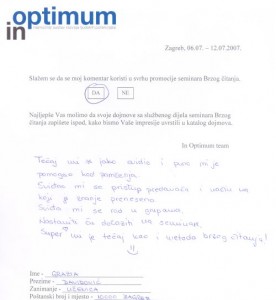 in optimum
Zagreb, 06.07. – 12.07.2007.
Slažem se da se moj komentar koristi u svrhu promocije seminara Brzog čitanja.
DA NE
Najljepše Vas molimo da svoje dojmove sa službenog dijela seminara Brzog
čitanja zapišete ispod, kako bismo Vaše impresije uvrstili u katalog dojmova.
In Optimum team
Tečaj mi se jako svidio i puno mi je
pomogao kod pamćenja.
Sviđa mi se pristup predavača i način na
koji je znanje preneseno.
Sviđa mi se rad u grupama.
Nastavit ću dolaziti na seminare.
Super mi je tečaj kao i metoda brzog čitanja!
Ime -
Prezime - DAVIDOVIĆ
Zanimanje - UČENICA
Poštanski broj i mjesto - 10000 ZAGREB